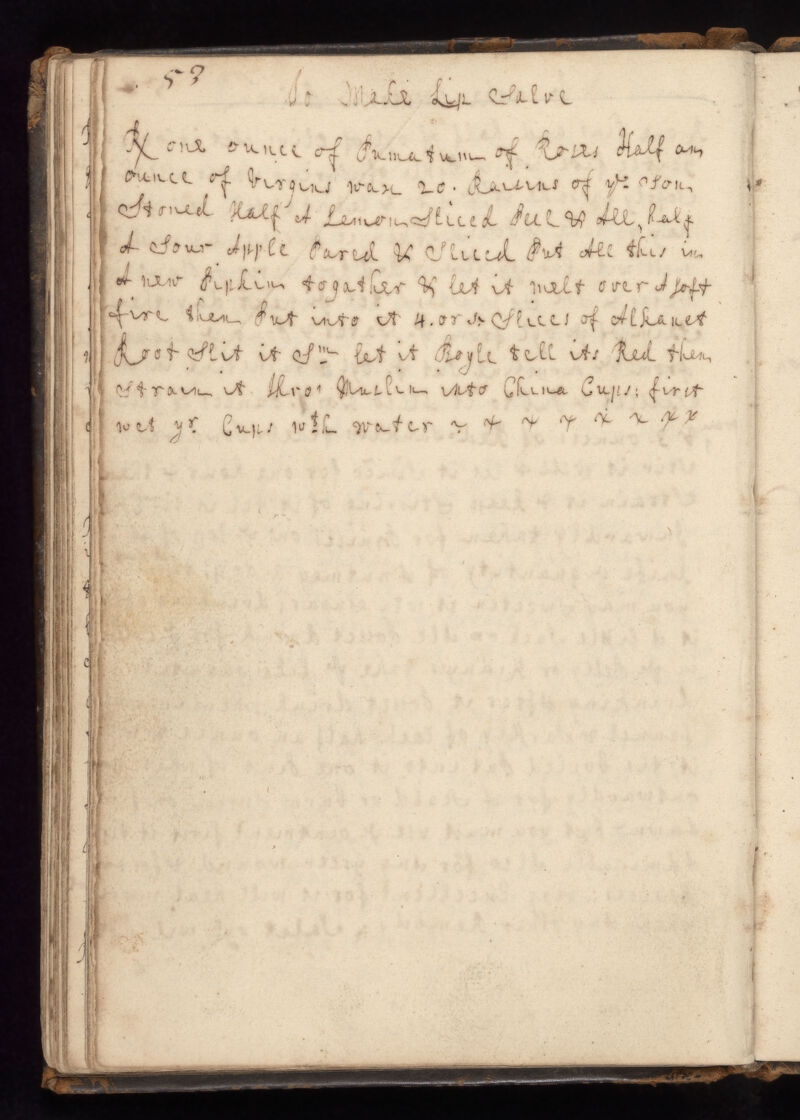 53
To Make Lip Salve
℞ one ounce of Pumatum of Roses Half an
ounce of Virgins wax 20. Raisins of ye. Son
Stoned Half A Lemon Sliced Peel & All, half
A Sour Apple Pared & Sliced Put All this in
A new Pipkin togather & let it melt over A soft
fire then Put into it 4. or 5 Slices of Alkanet
Root Slit it Sm let it Boyle tell its Red then
Strain it thro' Muslin into China Cups; first
wet yr. Cups wth water